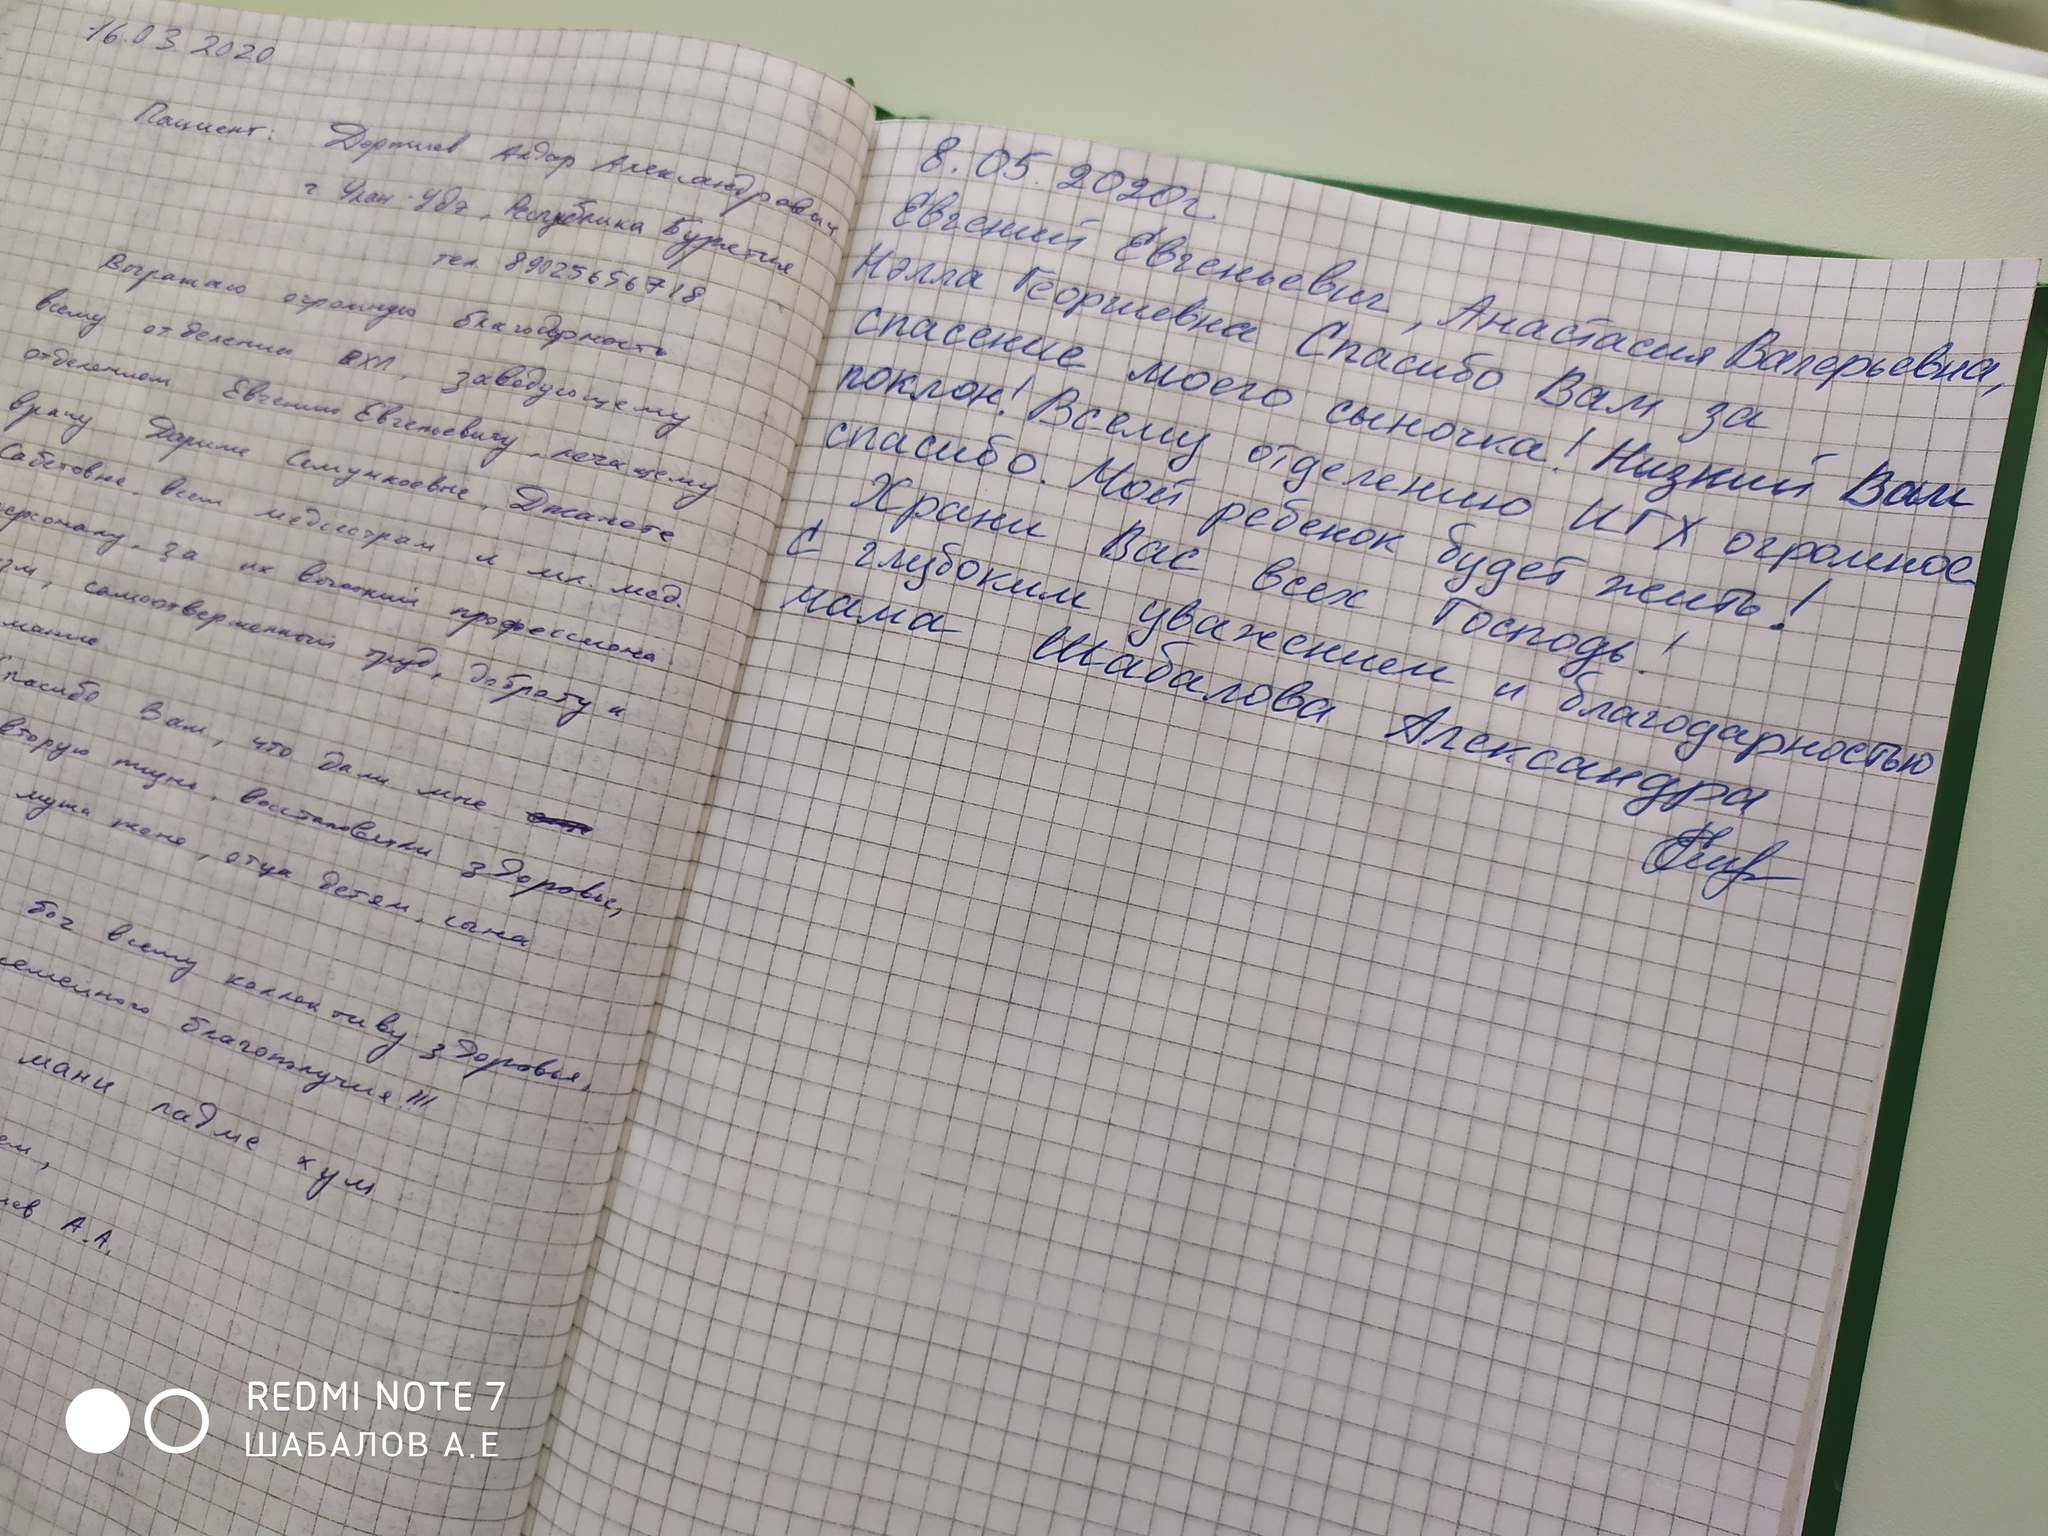 16.03.2020
Пациент: Доржиев Алдар Александрович
г. Улан-Удэ, Республика Бурятия
тел. 89025656718
Выражаю огромную благодарность
всему отделению ОХЛ, заведующему
отделением Евгению Евгеньевичу, лечащему
врачу Дариме
всем медсестрам и мл. мед.
за их высокий профессиона
самоотверженный труд, доброту и
Спасибо Вам, что дали мне
вторую жизнь, восстановили здоровье,
мужа жене, отца детям, сына
бог всему коллективу здоровья,
семейного благополучия!!!
мани падме хум
А.А.
8.05.2020г.
Евгений Евгеньевич, Анастасия Валерьевна,
Нэлла Георгиевна Спасибо Вам за
спасение моего сыночка! Низкий Вам
поклон! Всему отделению ИГХ огромное
спасибо. Мой ребенок будет жить!
Храни Вас всех Господь!
С глубоким уважением и благодарностью
мама Шабалова Александра
REDMI NOTE 7
ШАБАЛОВ А.Е